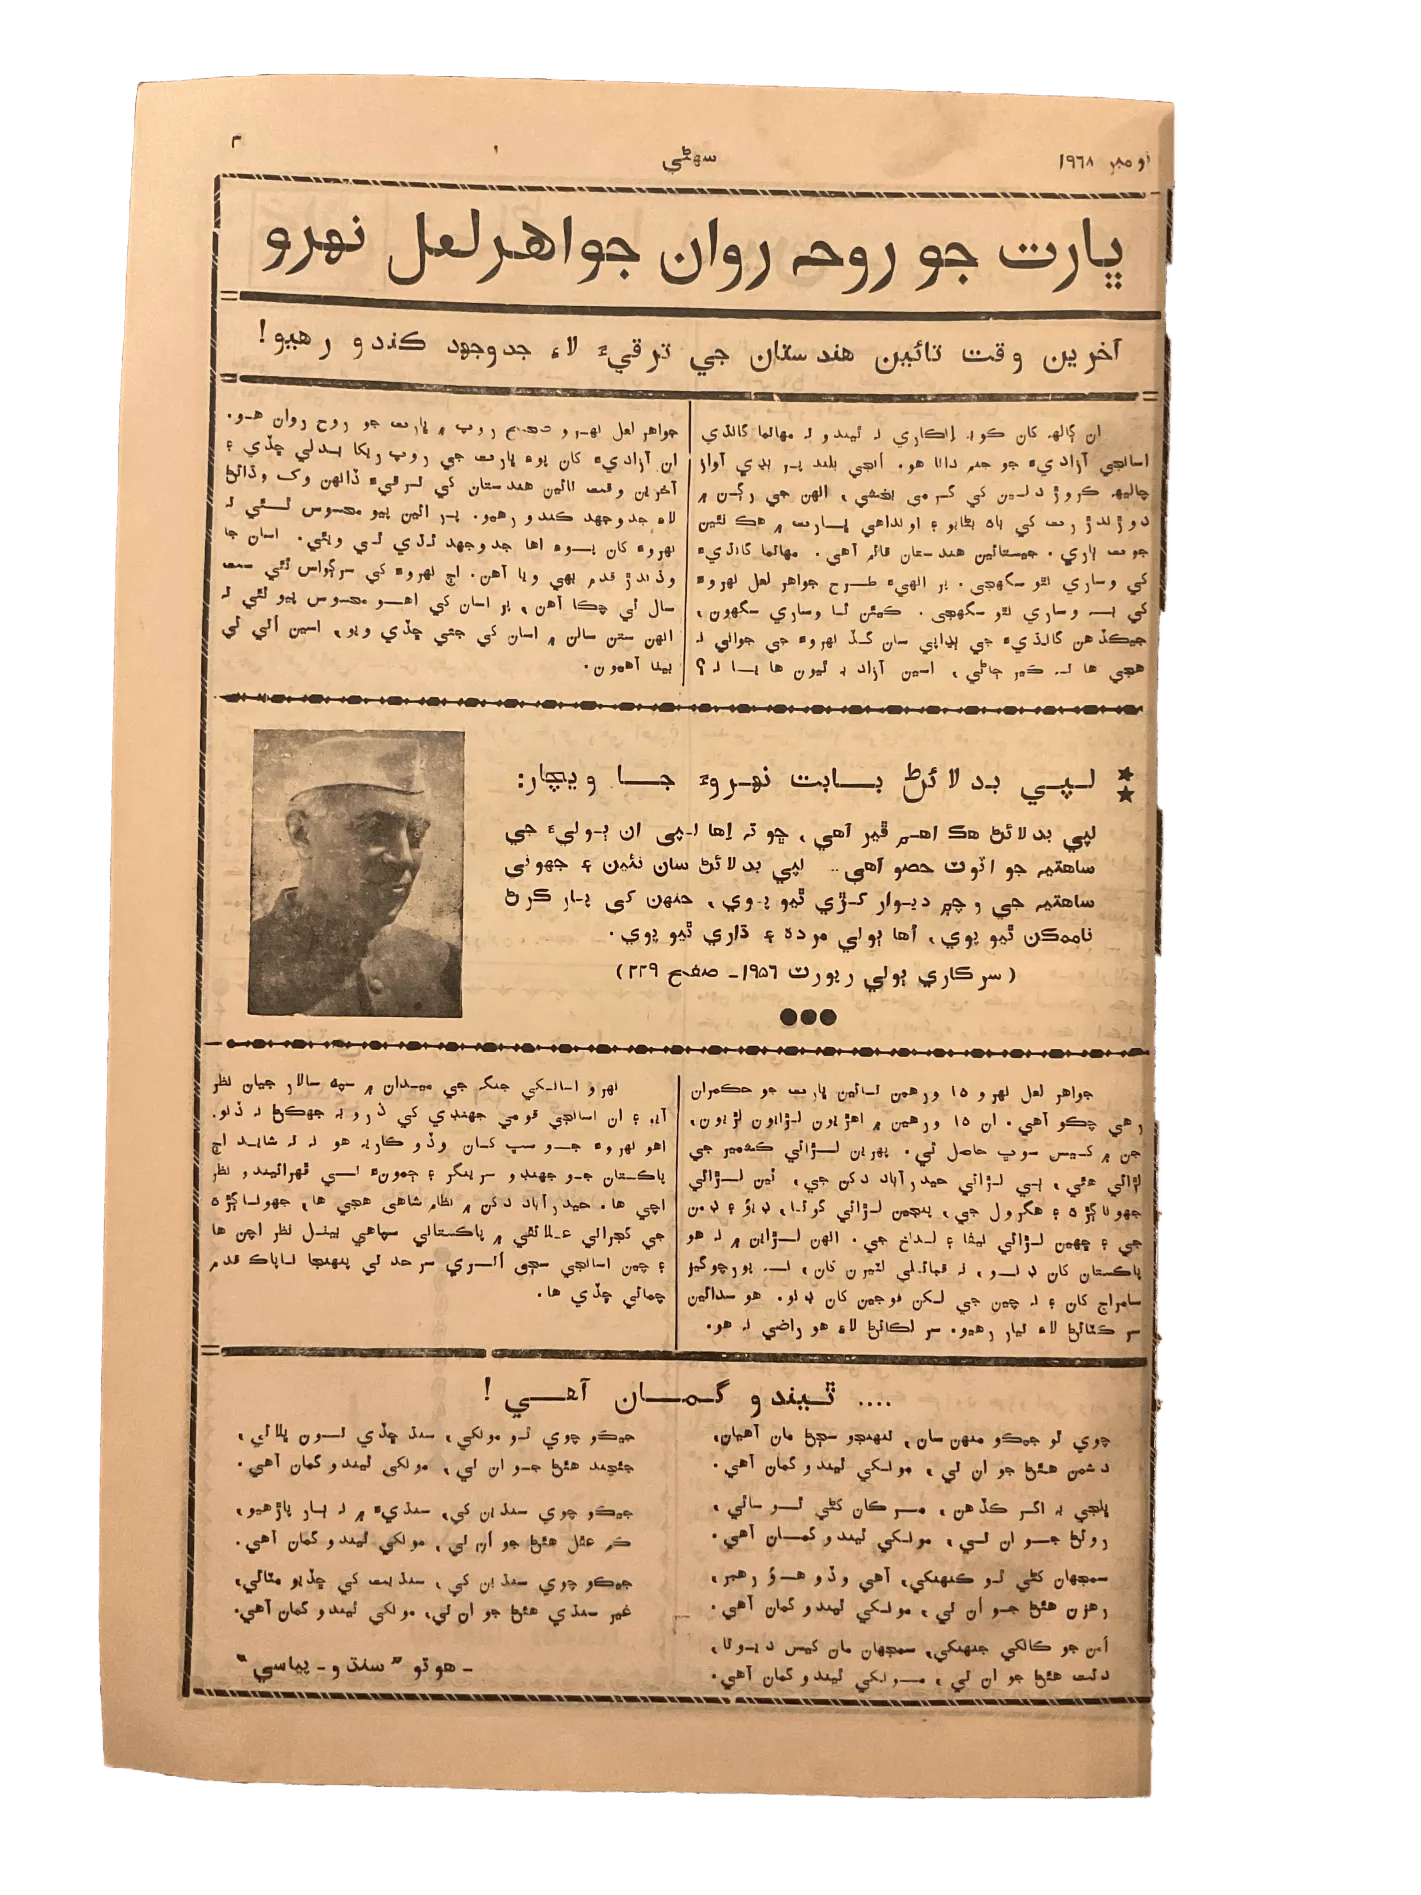 نومبر ۱۹۶۸
سهڻي
۳
ڀارت جو روحہ روان جواهرلعل نهرو
آخرين وقت تائين هندستان جي ترقيءَ لاءِ جدوجهد ڪندو رهيو!
ان ڳالهہ کان ڪوبہ اِنڪاري نہ ٿيندو تہ مهاتما گانڌي
اسانجي آزاديءَ جو جنم داتا هو. اُنجي بلند پر ٻڍي آواز
چاليهہ ڪروڙ دلين کي گرمي بخشي، انهن جي رڳن ۾
دوڙندڙ رت کي باهہ بڻايو ۽ اونداهي ڀارت ۾ هڪ نئين
جوت ٻاري. جيستائين هندستان قائم آهي. مهاتما گانڌيءَ
کي وساري نٿو سگهجي. پر انهيءَ طرح جواهر لعل نهروءَ
کي بہ وساري نٿو سگهجي. ڪيئن ٿا وساري سگهون،
جيڪڏهن گانڌيءَ جي ٻڍاپي سان گڏ نهروءَ جي جواني نہ
هجي ها تہ ڪير ڄاڻي، اسين آزاد بہ ٿيون ها يا نہ؟
جواهر لعل نهرو صحيح روپ ۾ ڀارت جو روح روان هو.
ان آزاديءَ کان پوءِ ڀارت جي روپ ريکا بدلي ڇڏي ۽
آخرين وقت تائين هندستان کي ترقيءَ ڏانهن وک وڌائڻ
لاءِ جدوجهد ڪندو رهيو. پر ائين پيو محسوس ٿئي تہ
نهروءَ کان پوءِ اها جدوجهد ٿڌي ٿي ويئي. اسان جا
وڌندڙ قدم بيهي ويا آهن. اڄ نهروءَ کي سرڳواس ٿئي ست
سال ٿي چڪا آهن، پر اسان کي اهو محسوس پيو ٿئي تہ
انهن ستن سالن ۾ اسان کي جتي ڇڏي ويو، اسين اُتي ئي
بيٺا آهيون.
لپي بدلائڻ بابت نهروءَ جا ويچار:
لپي بدلائڻ هڪ اهم ڦير آهي، ڇو تہ اِها لپي ان ٻوليءَ جي
ساهتيہ جو اٽوٽ حصو آهي.. لپي بدلائڻ سان نئين ۽ جهوني
ساهتيہ جي وچ۾ ديوار کڙي ٿيو پوي، جنهن کي پار ڪرڻ
ناممڪن ٿيو پوي، اُها ٻولي مرده ۽ ڌاري ٿيو پوي.
(سرڪاري ٻولي رپورٽ ۱۹۵۶ـ صفح ۲۲۹)
جواهر لعل نهرو ۱۵ ورهين تائين ڀارت جو حڪمران
رهي چڪو آهي. ان ۱۵ ورهين ۾ اهڙيون لڙايون لڙيون،
جن ۾ کيس سوڀ حاصل ٿي. پهرين لڙائي ڪشمير جي
لڙائي هئي، ٻي لڙائي حيدرآباد دکن جي، ٽين لڙائي
جهوناڳڙهہ ۽ هنگرول جي، پنجين لڙائي گوئا، ڊيؤ ۽ ڊمن
جي ۽ ڇهين لڙائي نيفا ۽ لداخ جي. انهن لڙاين ۾ نہ هو
پاڪستان کان ڊنو، نہ قبائلي لٽيرن کان، نہ پورچوگيز
سامراج کان ۽ نہ چين جي لکن فوجين کان ڊنو. هو سدائين
سر ڪٽائڻ لاءِ تيار رهيو. سر لڪائڻ لاءِ هو راضي نہ هو.
نهرو اسانکي جنگ جي ميدان ۾ سپہ سالار جيان نظر
آيو ۽ ان اسانجي قومي جهنڊي کي ذرو بہ جهڪڻ نہ ڏنو.
اهو نهروءَ جو سڀ کان وڏو ڪاريہ هو نہ تہ شايد اڄ
پاڪستان جو جهنڊو سرينگر ۽ جمونءَ تي ڦهرائيندو نظر
اچي ها. حيدرآباد دکن ۾ نظام شاهي هجي ها، جهوناڳڙهہ
جي گجراتي علائقي ۾ پاڪستاني سپاهي بيٺل نظر اچن ها
۽ چين اسانجي سڄي اُتري سرحد تي پنهنجا ناپاڪ قدم
ڄمائي ڇڏي ها.
.... ٿيندو گمان آهي!
چوي ٿو جيڪو منهن سان، تنهنجو سڄڻ مان آهيان،
دشمن هئڻ جو ان تي، مونکي ٿيندو گمان آهي.
پلجي بہ اگر ڪڏهن، مرڪان کڻي ٿو ساٿي،
روئڻ جو ان تي، مونکي ٿيندو گمان آهي.
سمجهان کڻي ٿو ڪنهنکي، آهي وڏو هو رهبر،
رهزن هئڻ جو اُن تي، مونکي ٿيندو گمان آهي.
اَمن جو ڪانکي جنهنکي، سمجهان مان کيس ديوتا،
دئت هئڻ جو ان تي، مونکي ٿيندو گمان آهي.
جيڪو چوي ٿو مونکي، سنڌ ڇڏي تون ڀلائي،
جئچند هئڻ جو ان تي، مونکي ٿيندو گمان آهي.
جيڪو چوي سنڌين کي، سنڌيءَ ۾ نہ ٻار پاڙهيو،
ڪم عقل هئڻ جو اُن تي، مونکي ٿيندو گمان آهي.
جيڪو چوي سنڌين کي، سنڌيت کي ڇڏيو مٽائي،
غير سنڌي هئڻ جو ان تي، مونکي ٿيندو گمان آهي.
ـ هوتو "سنڌو ـ پياسي"